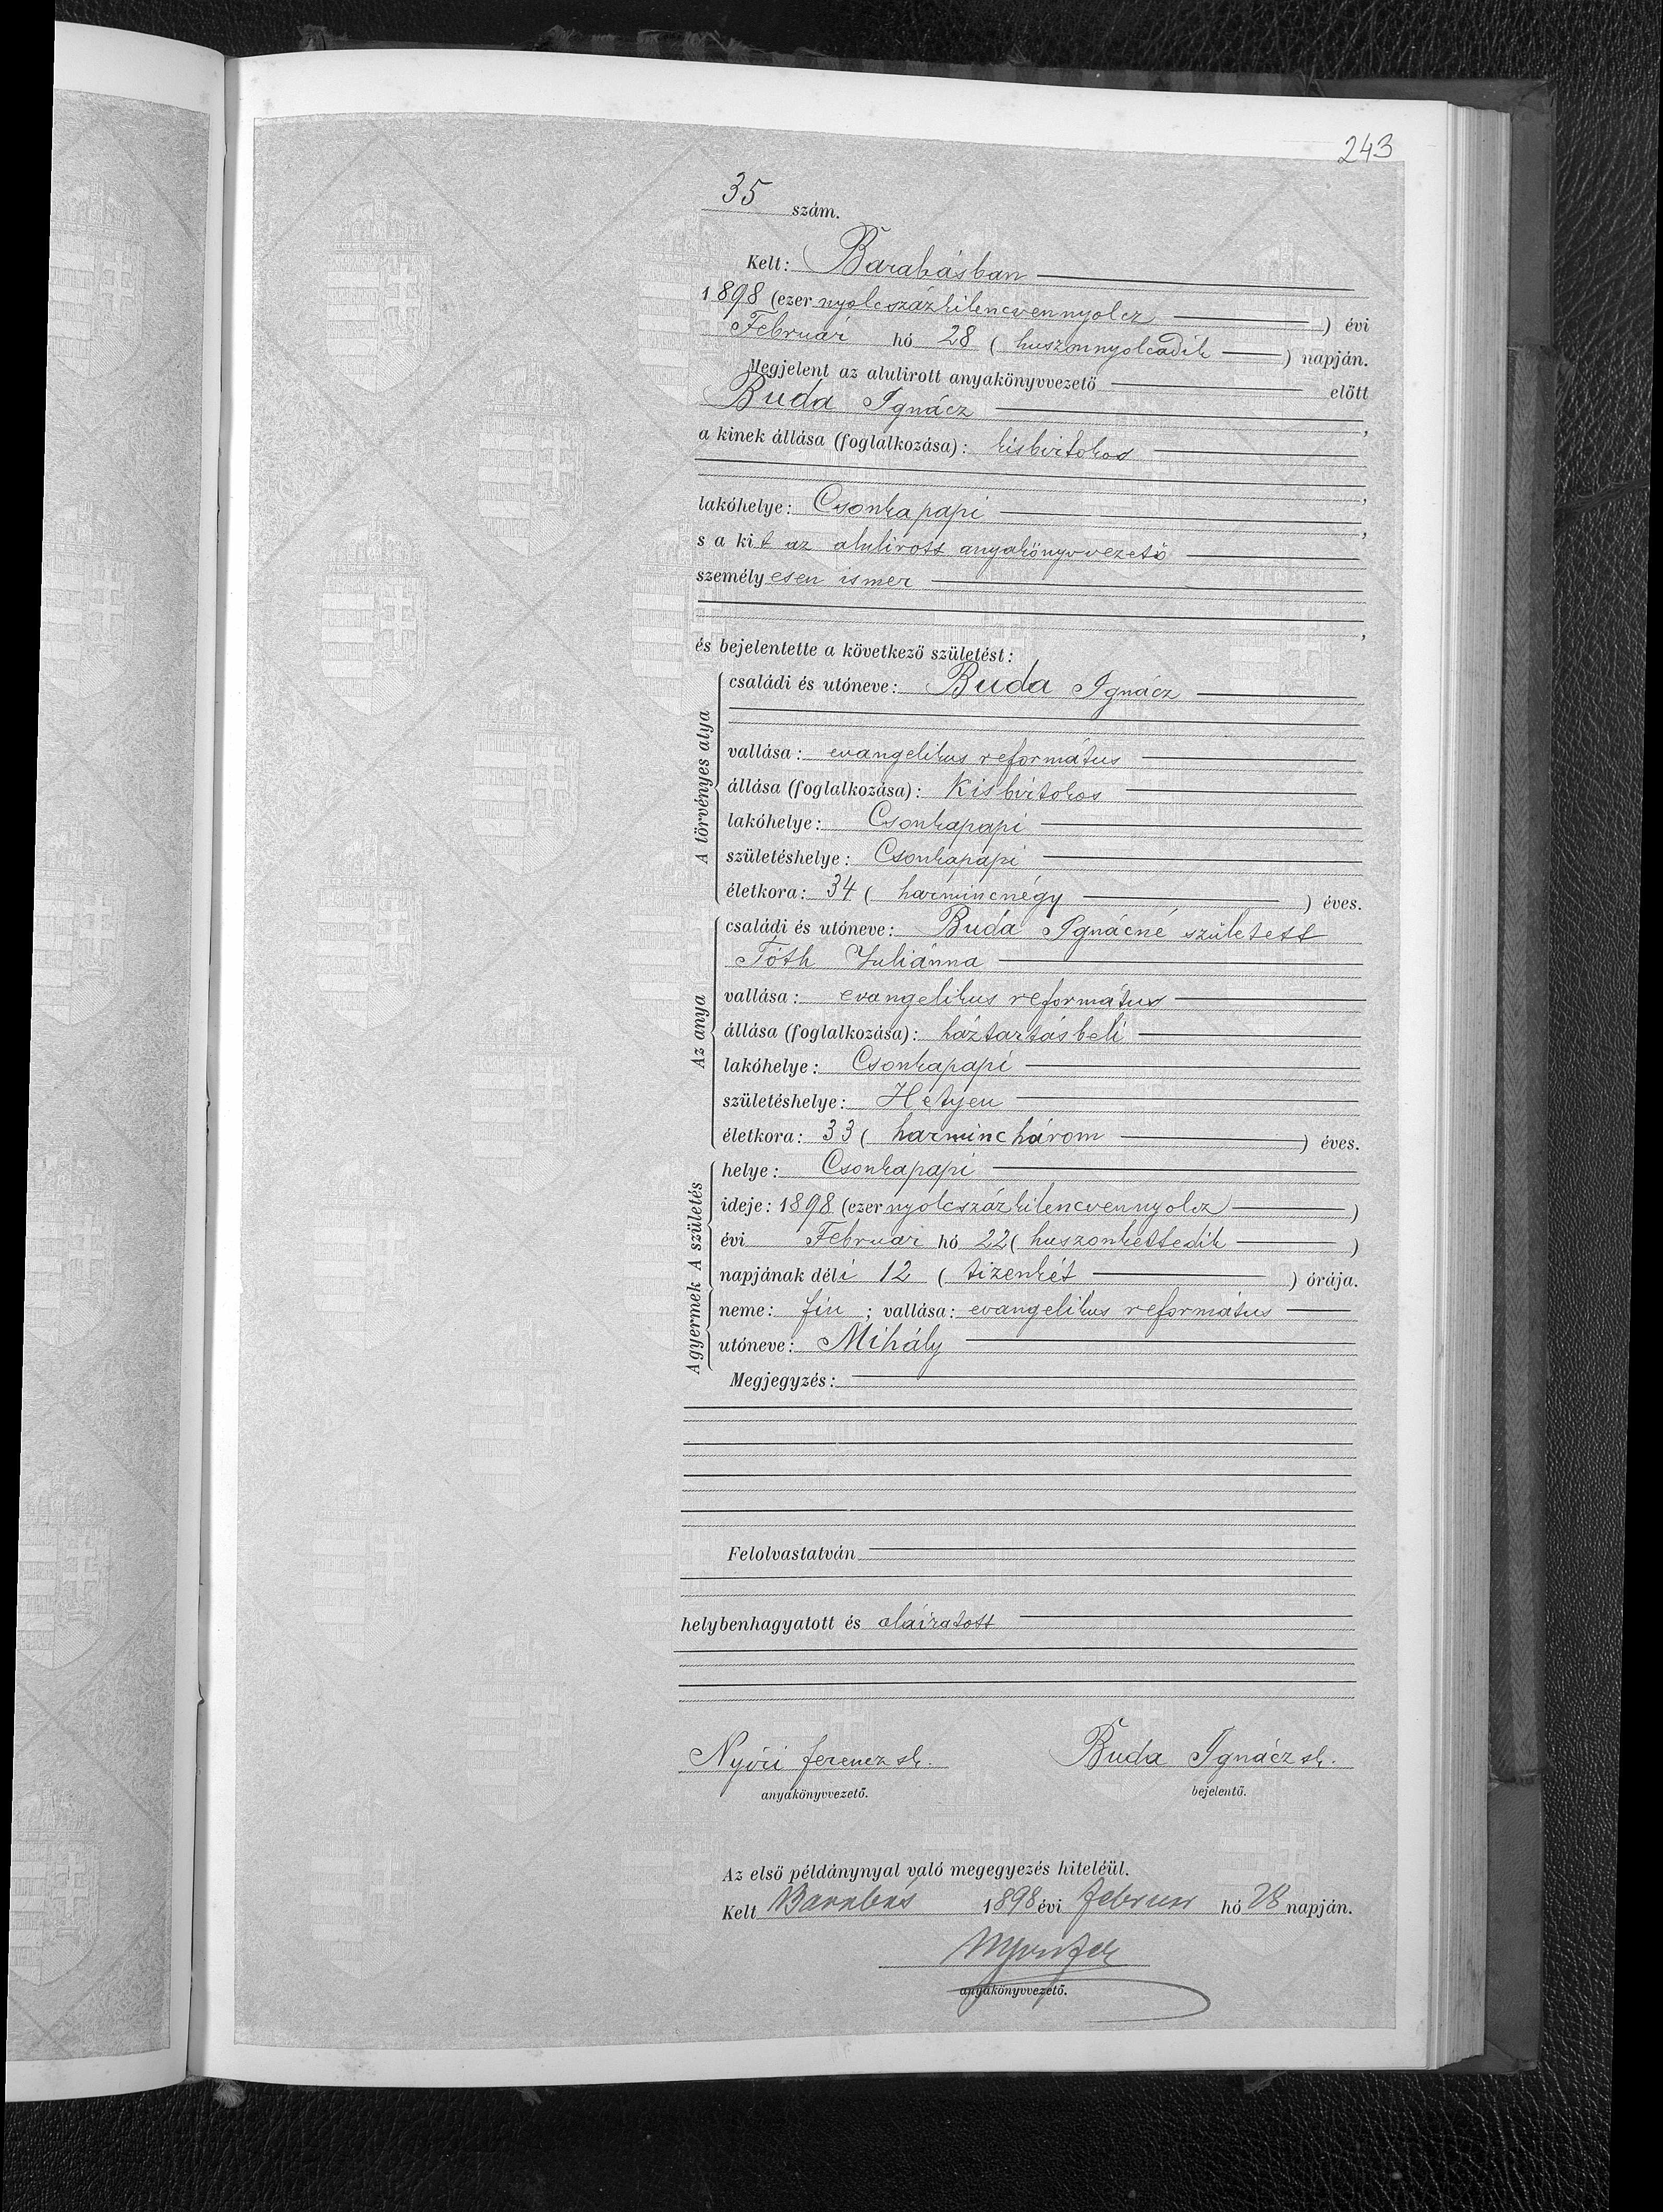 243
35 szám.
Kelt: Barabásban
1898 (ezer nyolcszázkilencvennyolcz) évi
Február hó 28 (huszonnyolcadik) napján.
Megjelent az alulirott anyakönyvvezető előtt
Buda Ignácz,
a kinek állása (foglalkozása): kisbirtokos,
lakóhelye: Csonkapapi,
s a kit az alulirott anyakönyvvezető
személyesen ismer,
és bejelentette a következő születést:
A törvényes atya
családi és utóneve: Buda Ignácz
vallása: evangelikus református
állása (foglalkozása): Kisbirtokos
lakóhelye: Csonkapapi
születéshelye: Csonkapapi
életkora: 34 (harmincnégy) éves.
Az anya
családi és utóneve: Buda Ignácné született
Tóth Juliánna
vallása: evangelikus református
állása (foglalkozása): háztartásbeli
lakóhelye: Csonkapapi
születéshelye: Hetyen
életkora: 33 (harminchárom) éves.
A születés
helye: Csonkapapi
ideje: 1898 (ezer nyolcszázkilencvennyolcz)
évi Február hó 22 (huszonkettedik)
napjának déli 12 (tizenkét) órája.
A gyermek
neme: fiu; vallása: evangelikus református
utóneve: Mihály
Megjegyzés:
Felolvastatván
helybenhagyatott és aláiratott
Nyíri Ferencz sk. Buda Ignácz sk.
anyakönyvvezető. bejelentő.
Az első példánynyal való megegyezés hiteléül.
Kelt Barabás 1898 évi Február hó 28 napján.
anyakönyvvezető.